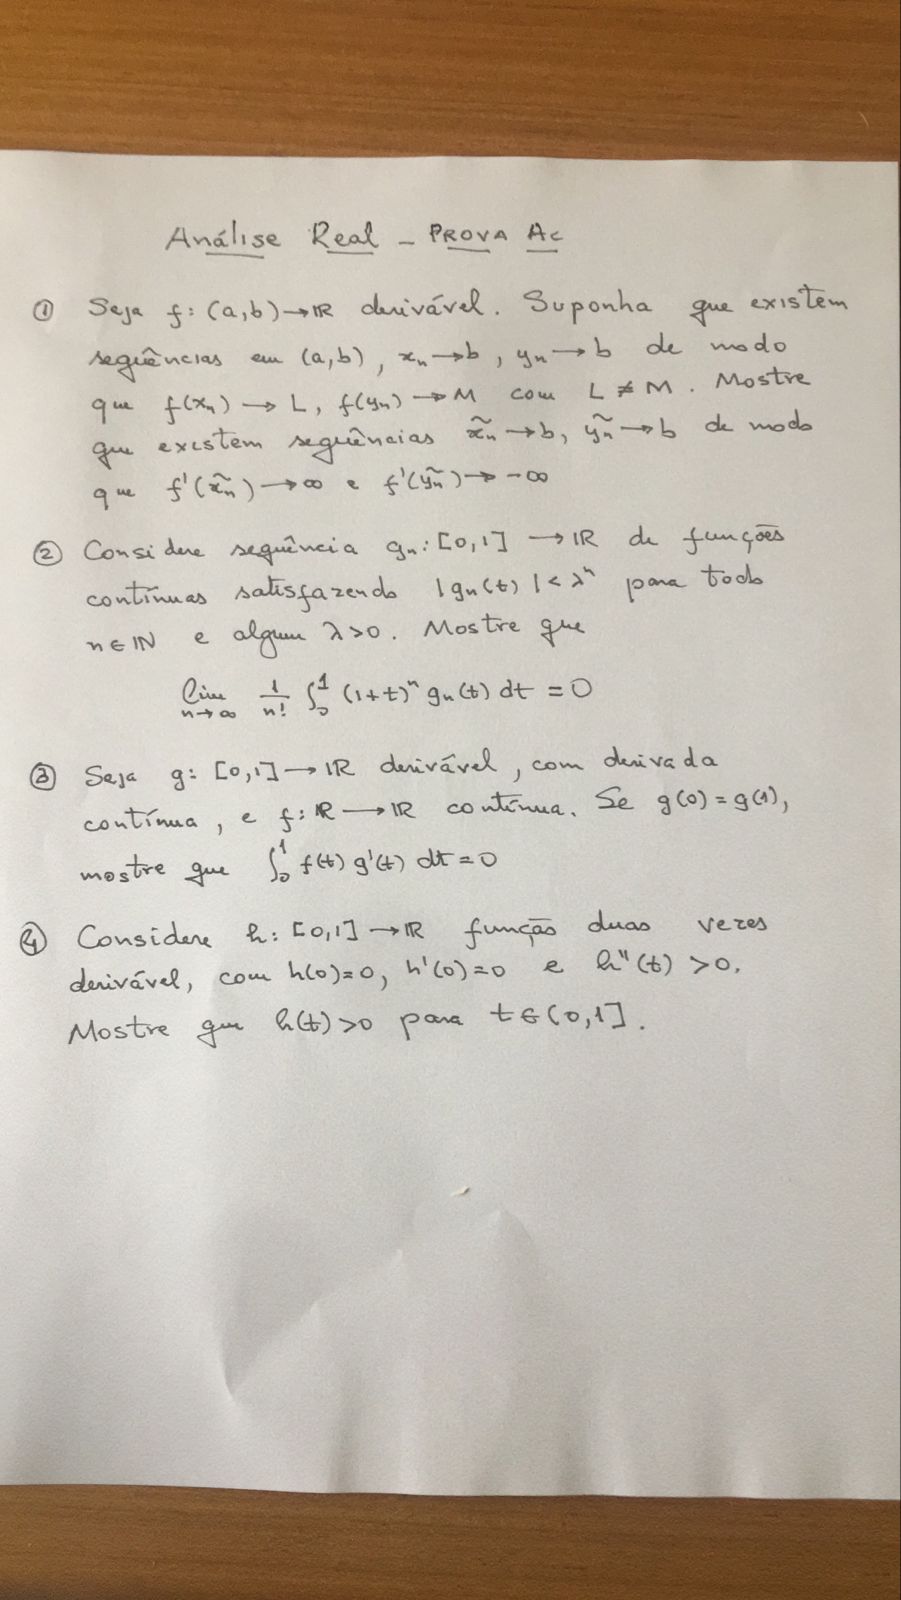 Análise Real - PROVA AC
① Seja f: (a,b)→IR derivável. Suponha que existem
sequências em (a,b), xₙ→b, yₙ→b de modo
que f(xₙ)→L, f(yₙ)→M com L≠M. Mostre
que existem sequências x̃ₙ→b, ỹₙ→b de modo
que f'(x̃ₙ)→∞ e f'(ỹₙ)→-∞
② Considere sequência gₙ: [0,1]→IR de funções
contínuas satisfazendo |gₙ(t)|<λⁿ para todo
n∈IN e algum λ>0. Mostre que
lim n→∞ 1/n! ∫₀¹ (1+t)ⁿ gₙ(t) dt = 0
③ Seja g: [0,1]→IR derivável, com derivada
contínua, e f: IR→IR contínua. Se g(0)=g(1),
mostre que ∫₀¹ f(t) g'(t) dt=0
④ Considere h: [0,1]→IR função duas vezes
derivável, com h(0)=0, h'(0)=0 e h''(t)>0.
Mostre que h(t)>0 para t∈(0,1].